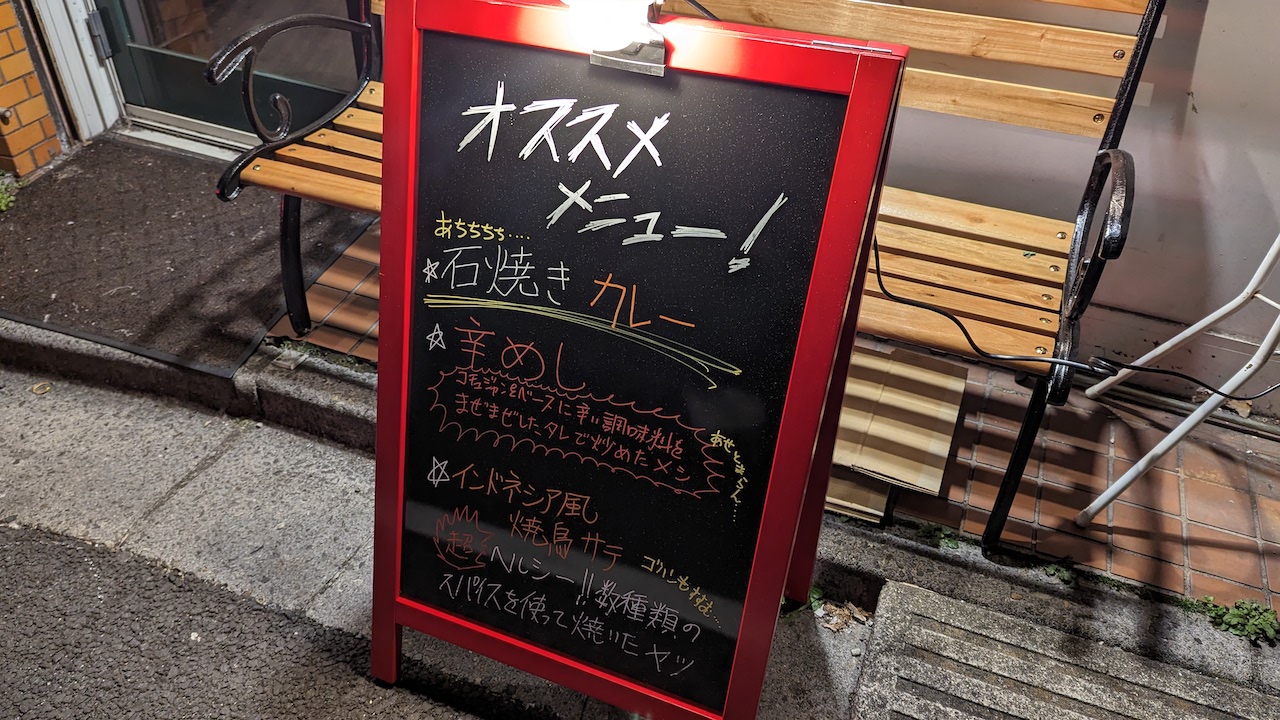 オススメ
メニュー！
あちちちち……
☆石焼きカレー
☆辛めし
コチュジャンをベースに辛い調味料を
まぜまぜしたタレで炒めたメシ
あせとまらん…
☆インドネシア風
焼鳥サテ
超
ヘルシー!!数種類の
スパイスを使って焼いたヤツ